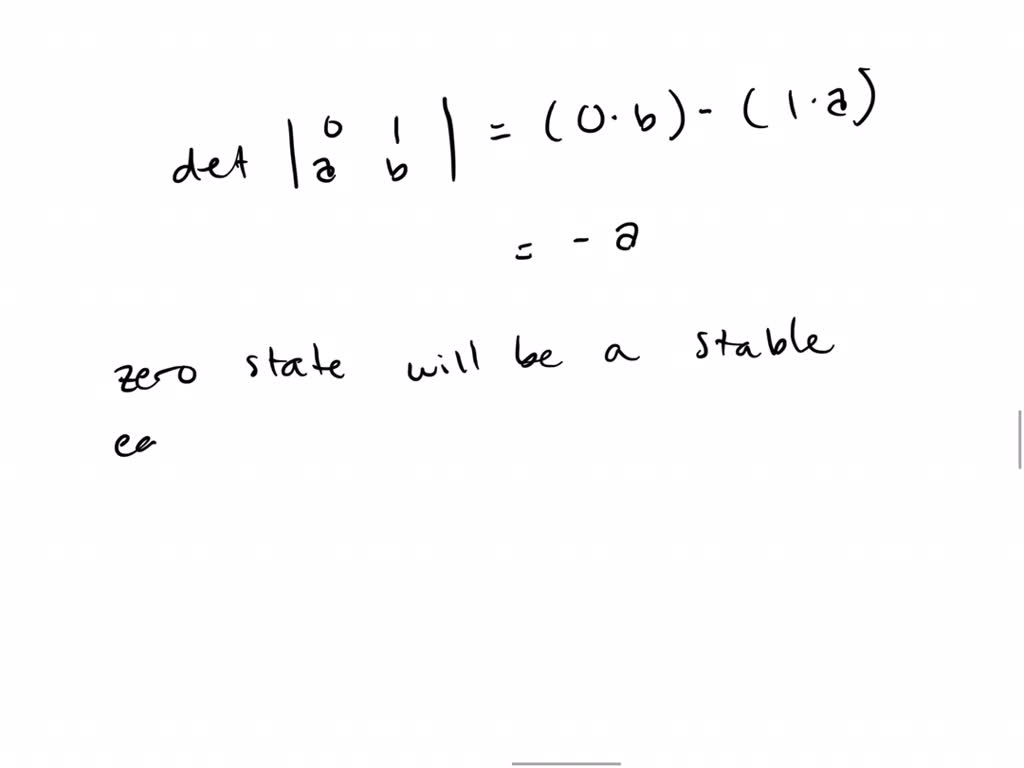 det | 0 1 | = (0·b) - (1·a)
a b
= - a
zero state will be a stable